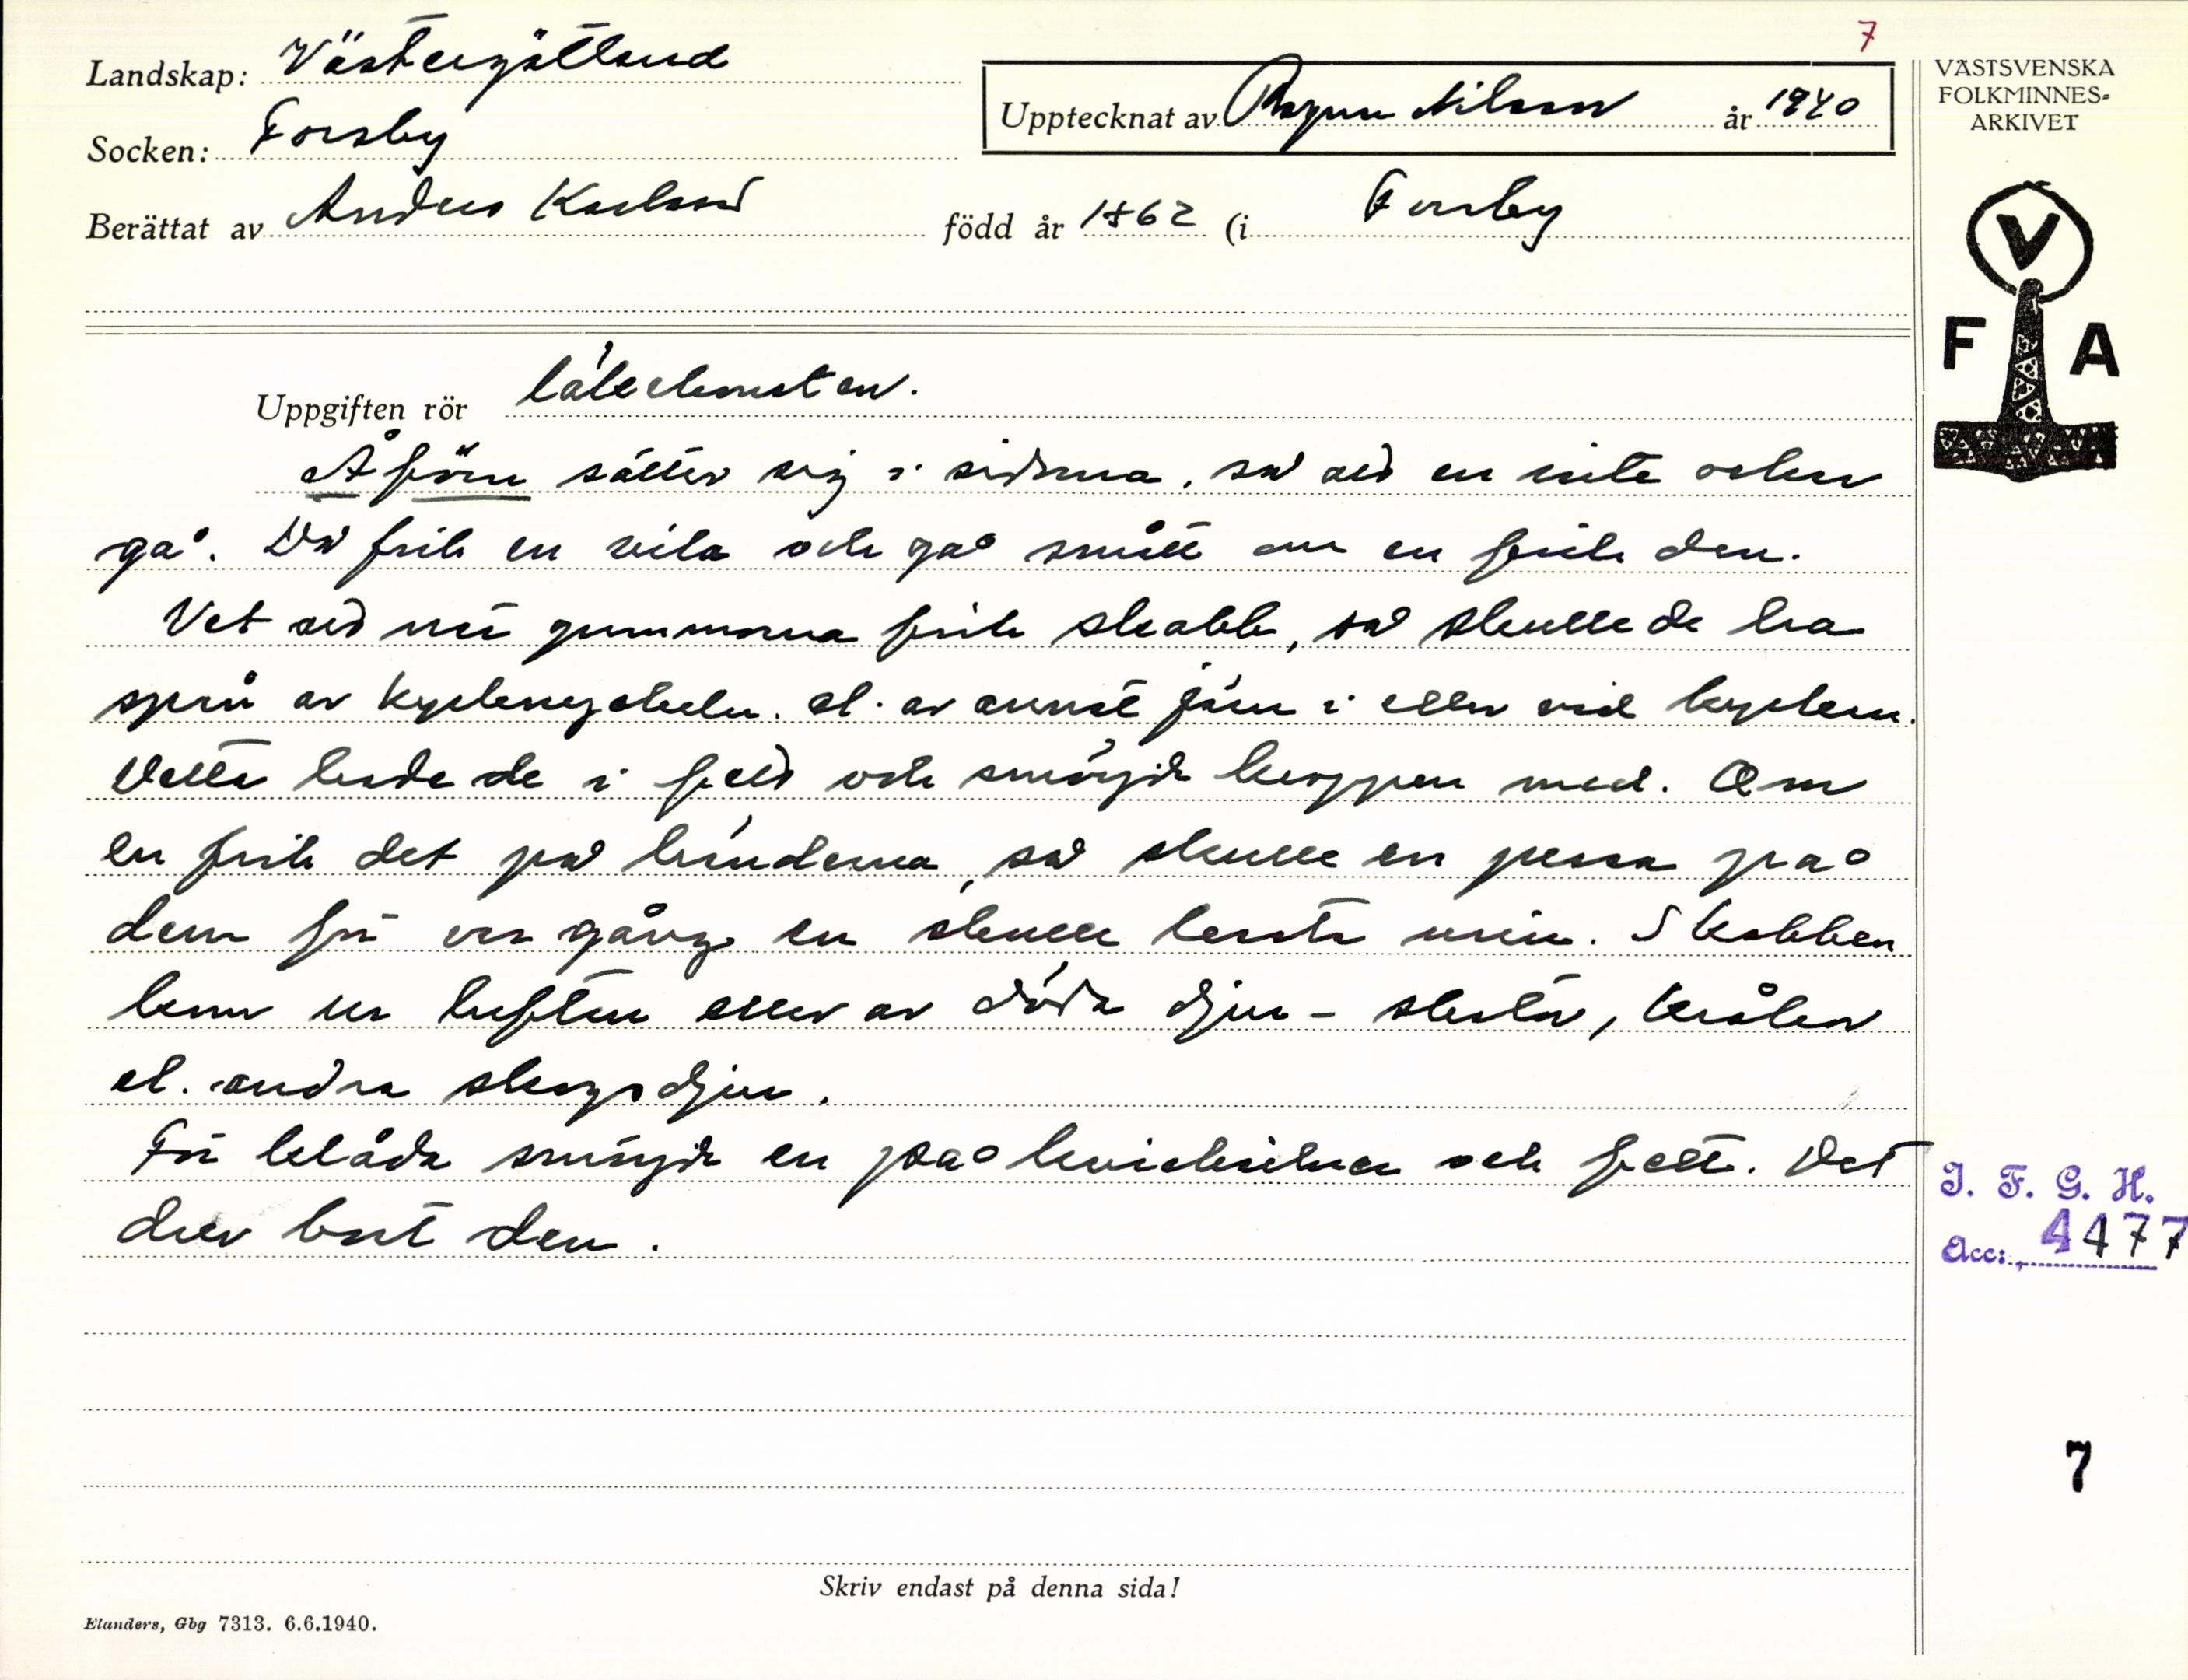 7
Landskap: Västergötland
Upptecknat av Ragnar Nilsson år 1940
VÄSTSVENSKA
FOLKMINNES-
ARKIVET
Socken: Forsby
Berättat av Anders Karlsson född år 1862 (i Forsby
V
F A
Uppgiften rör läkekonsten.
Åförm sätter sig i sidorna, så att en inte orkar
gå. Då fick en vila och gå smått om en fick den.
Vet att när gummorna fick skabb, så skulle de ha
spån av kyrknyckeln. el. av annat järn i eller vid kyrkan.
Detta hade de i fett och smörjde kroppen med. Om
en fick det på händerna, så skulle en pissa på
dem för var gång en skulle kasta urin. Skabben
kom ur luften eller av döda djur - skator, kråkor
el. andra skogsdjur.
För klåda smörjde en på kvicksilver och fett. Det
drev bort den.
I. F. G. H.
Acc: 4477
7
Skriv endast på denna sida!
Elanders, Gbg 7313. 6.6.1940.